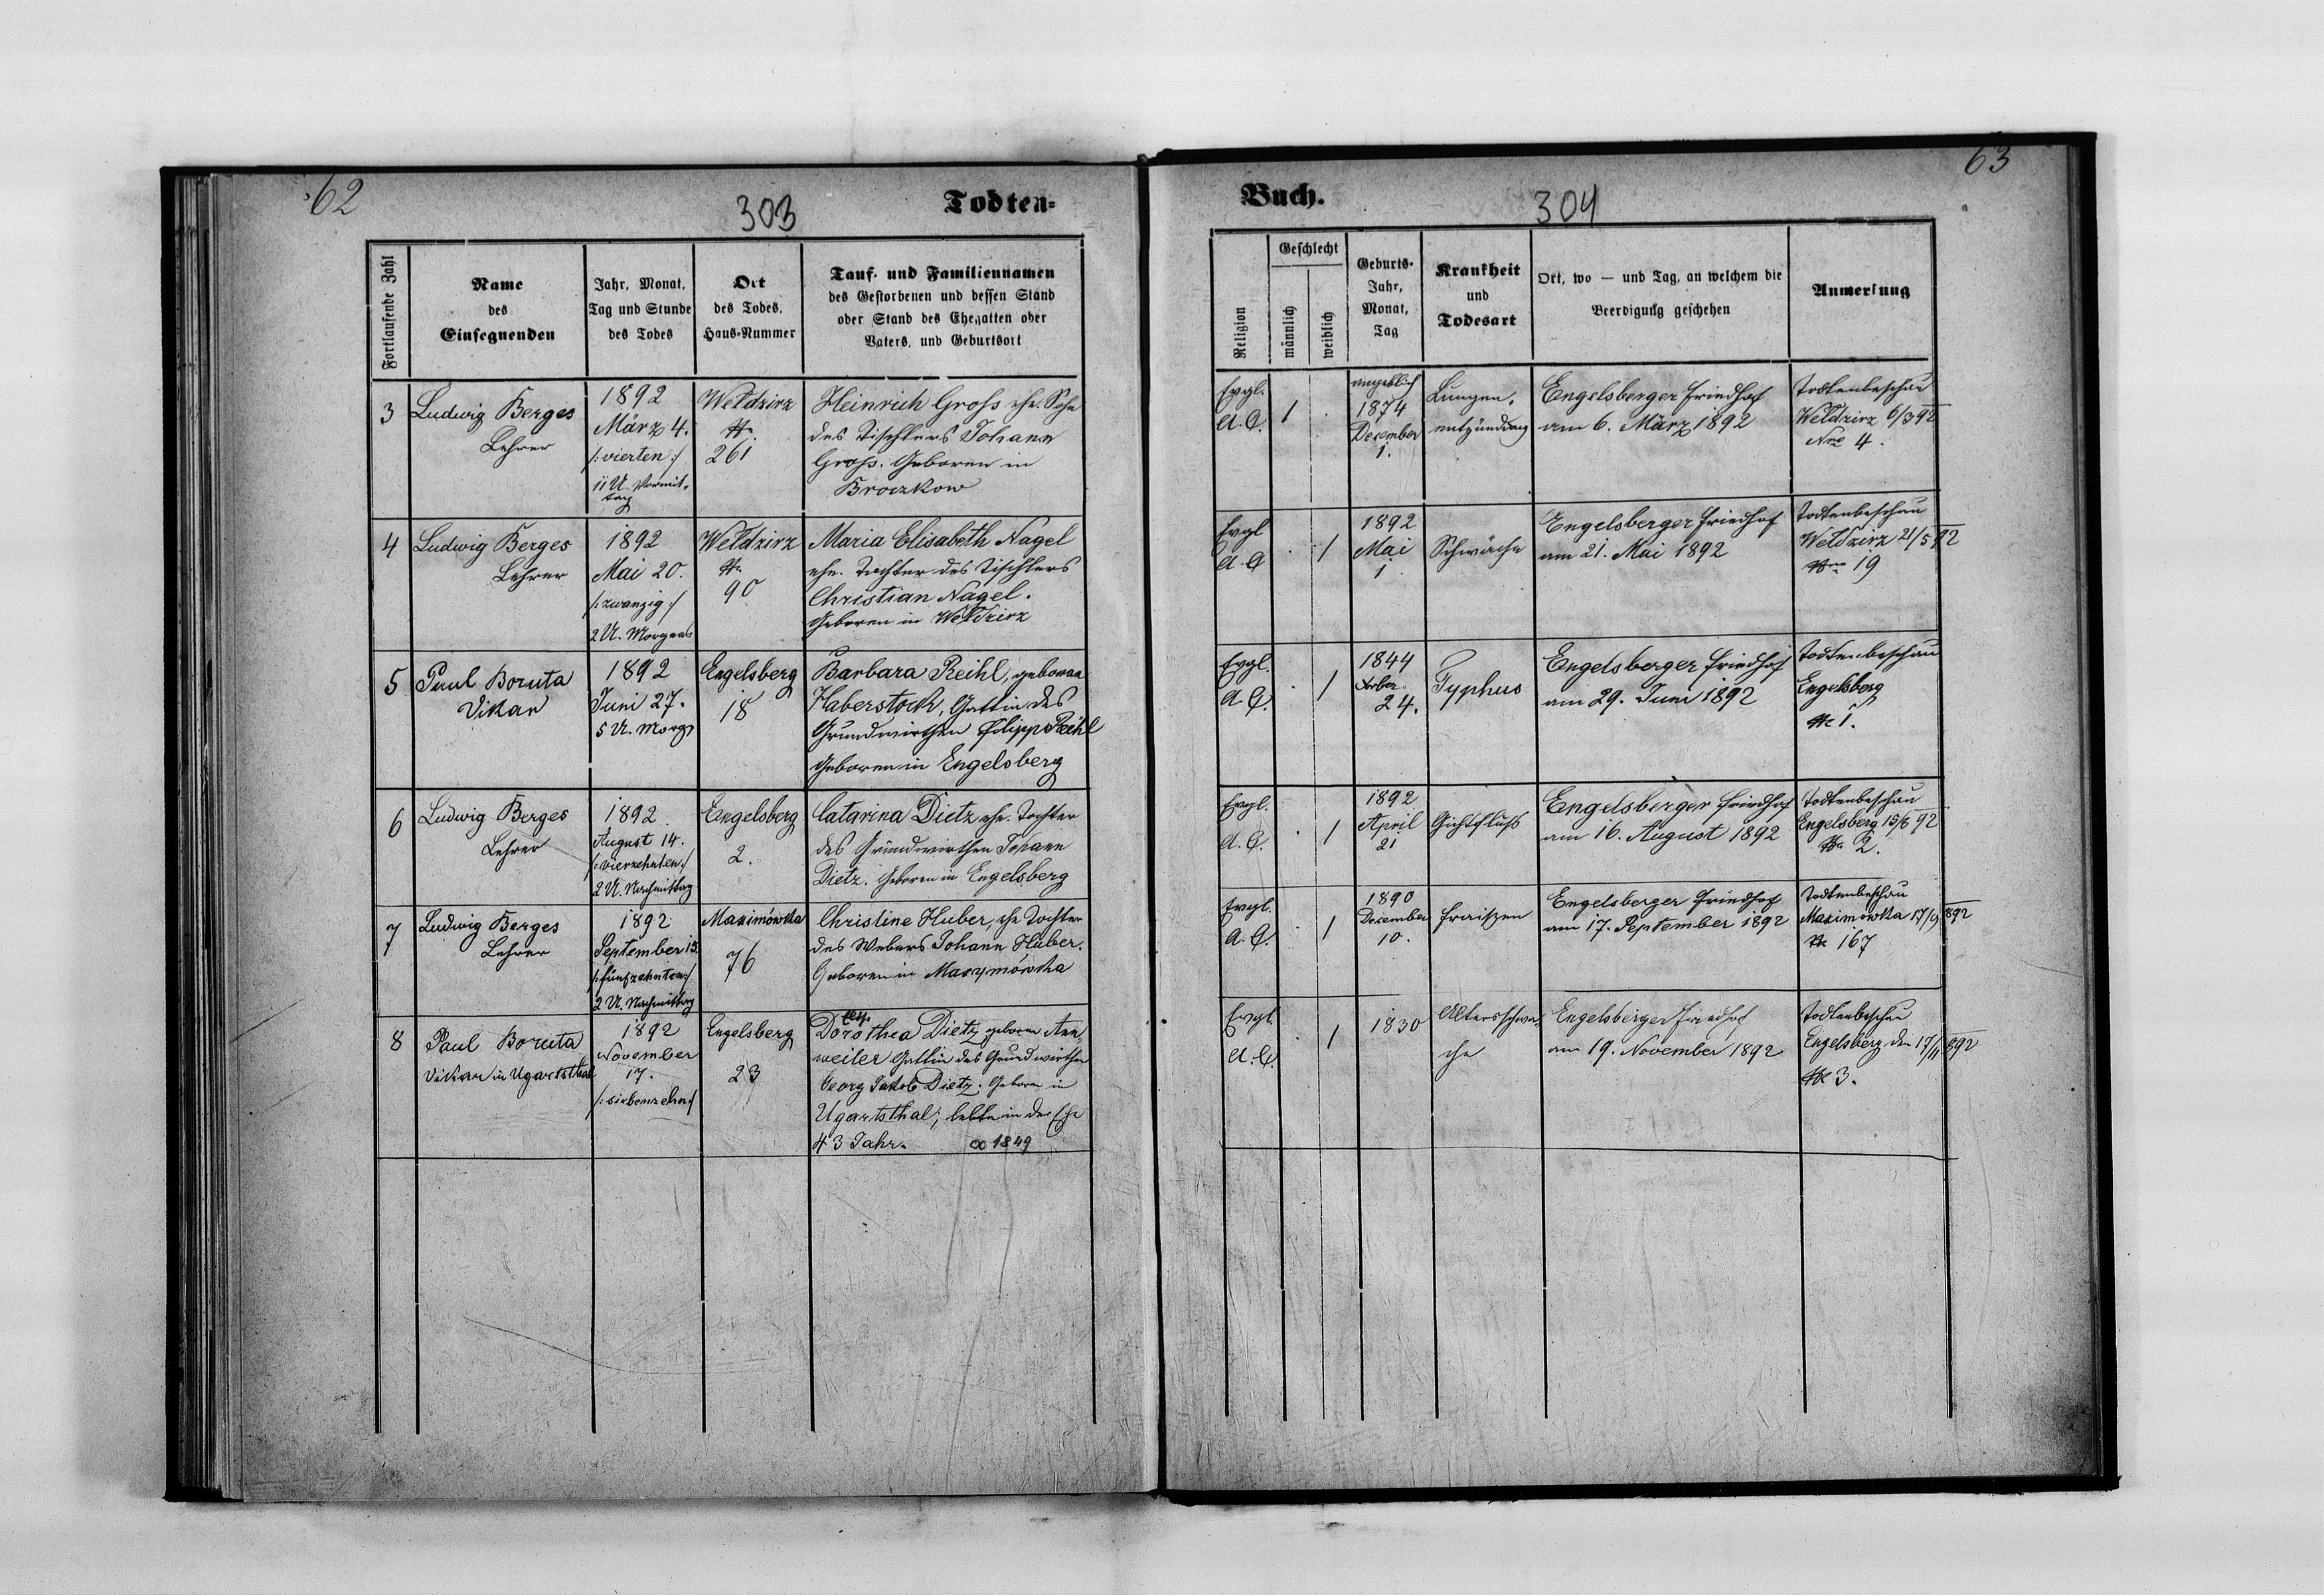 62
303
Todten=
Fortlaufende Zahl
Name
des
Einsegnenden
Jahr, Monat,
Tag und Stunde
des Todes
Ort
des Todes.
Haus=Nummer
Tauf- und Familiennamen
des Gestorbenen und dessen Stand
oder Stand des Ehegatten oder
Vaters, und Geburtsort
3
Ludwig Berges
Lehrer
1892
März 4.
/: vierten :/
11 U. Vormit-
tag
Weldzirz
261
Heinrich Groß ehe. Sohn
des Tischlers Johann
Groß. Geboren in
Broczkow
4
Ludwig Berges
Lehrer
1892
Mai 20.
/: zwanzig :/
2 U. Morgens
Weldzirz
90
Maria Elisabeth Nagel
ehe. Tochter des Tischlers
Christian Nagel.
Geboren in Weldzirz
5
Paul Boruta
Vikar
1892
Juni 27.
5 U. Morg.
Engelsberg
18
Barbara Reihl, geborene
Haberstock, Gattin des
Grundwirthen Filipp Reihl
Geboren in Engelsberg
6
Ludwig Berges
Lehrer
1892
August 14.
/: vierzehnten :/
2 U. Nachmittag
Engelsberg
2.
Catarina Dietz ehe. Tochter
des Grundwirthen Johann
Dietz. Geboren in Engelsberg
7
Ludwig Berges
Lehrer
1892
September 15.
/: fünfzehnten :/
2 U. Nachmittag
Maximówka
76
Christine Huber, ehe Tochter
des Webers Johann Huber.
Geboren in Maxymówka
8
Paul Boruta
Vikar in Ugartsthal
1892
November
17.
/: siebenzehn :/
Engelsberg
23
Dorothea Dietz geborne Ann-
weiler Gattin des Grundwirthen
Georg Jakob Dietz. Geboren in
Ugartsthal; lebte in der Ehe
43 Jahr. ∞ 1849
63
Buch.
304
Religion
Geschlecht
männlich
weiblich
Geburts-
Jahr,
Monat,
Tag
Krankheit
und
Todesart
Ort, wo — und Tag, an welchem die
Beerdigung geschehen
Anmerkung
Evgl.
A. C.
1
angeblich
1874
December
1.
Lungen-
entzündung
Engelsberger Friedhof
am 6. März 1892
Todtenbeschau
Weldzirz 6/3 92
Nro 4.
Evgl
A. C
1
1892
Mai
1
Schwäche
Engelsberger Friedhof
am 21. Mai 1892
Todtenbeschau
Weldzirz 21/5 92
19
Evgl.
A. C.
1
1844
24.
Typhus
Engelsberger Friedhof
am 29. Juni 1892
Todtenbeschau
Engelsberg
1.
Evgl.
A. C.
1
1892
April
21
Gichtfluß
Engelsberger Friedhof
am 16. August 1892
Todtenbeschau
Engelsberg 15/8 92
2.
Evgl.
A. C.
1
1890
December
10.
Fraißen
Engelsberger Friedhof
am 17. September 1892
Todtenbeschau
Maximowka 17/9 892
167
Evgl.
A. C.
1
1830
Altersschwä-
che
Engelsberger Friedhof
am 19. November 1892
Todtenbeschau
Engelsberg den 17/11 892
3.